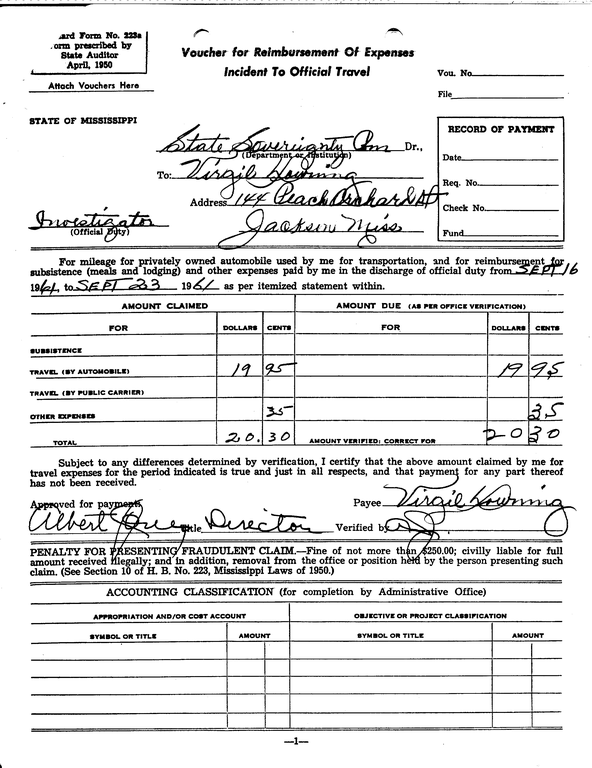 ard Form No. 223a
orm prescribed by
State Auditor
April, 1950
Attach Vouchers Here
Voucher for Reimbursement Of Expenses
Incident To Official Travel
Vou. No.
File
STATE OF MISSISSIPPI
State Sovereignty Com Dr.,
(Department or Institution)
To: Virgil Downing
Address 144 Peach Orchard St
Jackson Miss
Investigator
(Official Duty)
RECORD OF PAYMENT
Date
Req. No.
Check No.
Fund
For mileage for privately owned automobile used by me for transportation, and for reimbursement for
subsistence (meals and lodging) and other expenses paid by me in the discharge of official duty from SEPT 16
1961, to SEPT 23 1961 as per itemized statement within.
AMOUNT CLAIMED AMOUNT DUE (AS PER OFFICE VERIFICATION)
FOR DOLLARS CENTS FOR DOLLARS CENTS
SUBSISTENCE
TRAVEL (BY AUTOMOBILE) 19 95 19 95
TRAVEL (BY PUBLIC CARRIER)
OTHER EXPENSES 35 35
TOTAL 20.30 AMOUNT VERIFIED: CORRECT FOR 20 30
Subject to any differences determined by verification, I certify that the above amount claimed by me for
travel expenses for the period indicated is true and just in all respects, and that payment for any part thereof
has not been received.
Approved for payment: Payee Virgil Downing
Albert Title Director Verified by
PENALTY FOR PRESENTING FRAUDULENT CLAIM.—Fine of not more than $250.00; civilly liable for full
amount received illegally; and in addition, removal from the office or position held by the person presenting such
claim. (See Section 10 of H. B. No. 223, Mississippi Laws of 1950.)
ACCOUNTING CLASSIFICATION (for completion by Administrative Office)
APPROPRIATION AND/OR COST ACCOUNT OBJECTIVE OR PROJECT CLASSIFICATION
SYMBOL OR TITLE AMOUNT SYMBOL OR TITLE AMOUNT
—1—